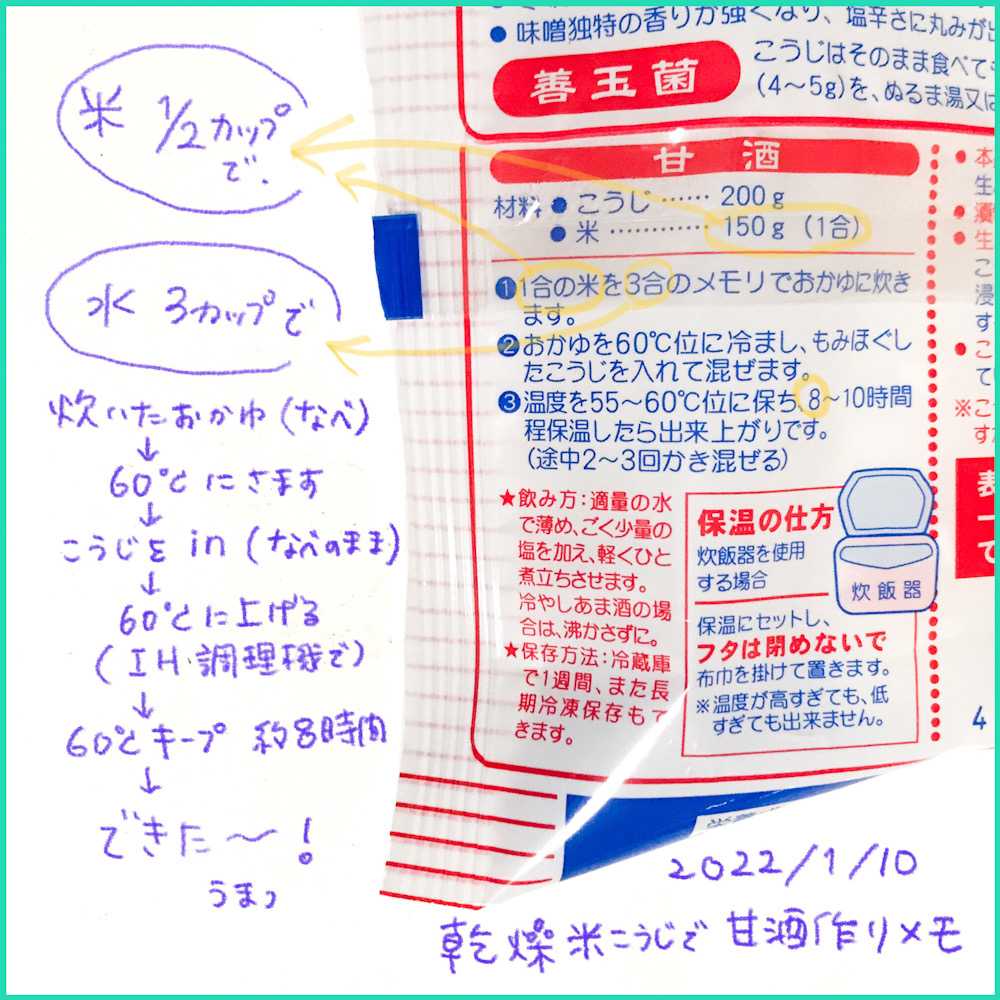 米 1/2カップ
で.
水 3カップで
炊いたおかゆ(なべ)
↓
60℃にさます
↓
こうじを in (なべのまま)
↓
60℃に上げる
(IH調理機で)
↓
60℃キープ 約8時間
↓
できた〜!
うまっ
●味噌独特の香りが強くなり、塩辛さに丸みが
善玉菌
こうじはそのまま食べても
(4〜5g)を、ぬるま湯又は
甘酒
材料●こうじ……200g
●米…………150g(1合)
❶1合の米を3合のメモリでおかゆに炊き
ます。
❷おかゆを60℃位に冷まし、もみほぐし
たこうじを入れて混ぜます。
❸温度を55〜60℃位に保ち、8〜10時間
程保温したら出来上がりです。
(途中2〜3回かき混ぜる)
★飲み方:適量の水
で薄め、ごく少量の
塩を加え、軽くひと
煮立ちさせます。
冷やしあま酒の場
合は、沸かさずに。
★保存方法:冷蔵庫
で1週間、また長
期冷凍保存もで
きます。
保温の仕方
炊飯器を使用
する場合
炊飯器
保温にセットし、
フタは閉めないで
布巾を掛けて置きます。
※温度が高すぎても、低
すぎても出来ません。
●本
生
●
●生
こ
浸
す
●こ
て
※こ
す
で
4
2022/1/10
乾燥米こうじで 甘酒作りメモ